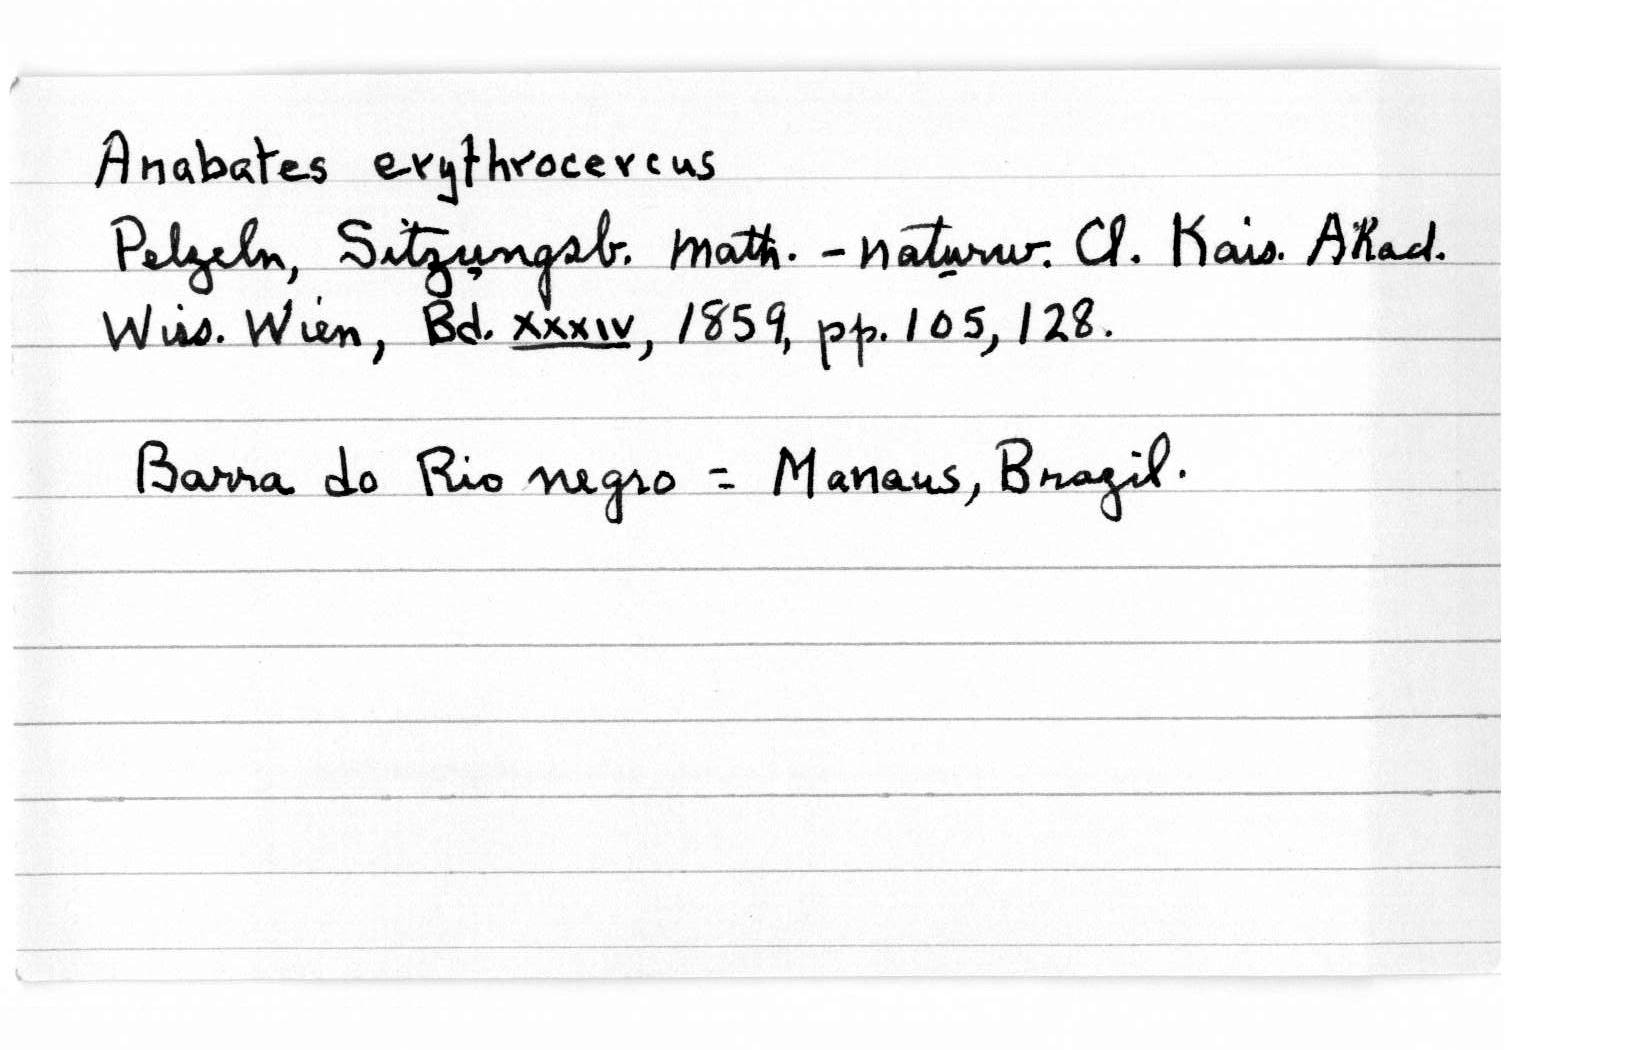 Anabates erythrocercus
Pelzeln, Sitzungsb. math. - naturw. Cl. Kais. Akad.
Wiss. Wien, Bd. XXXIV, 1859, pp. 105, 128.
Barra do Rio negro = Manaus, Brazil.